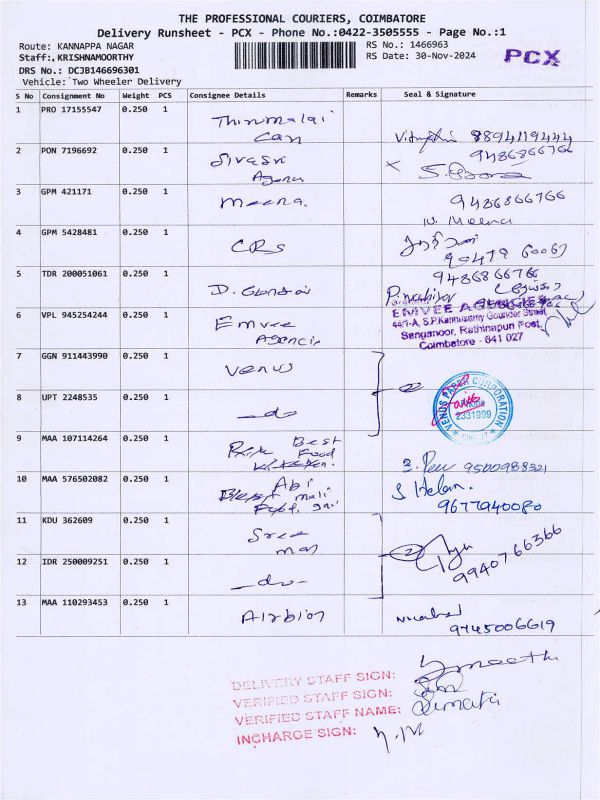 THE PROFESSIONAL COURIERS, COIMBATORE
Delivery Runsheet - PCX - Phone No.:0422-3505555 - Page No.:1
Route: KANNAPPA NAGAR
RS No.: 1466963
Staff:,KRISHNAMOORTHY
RS Date: 30-Nov-2024
PCX
DRS No.: DCJB146696301
Vehicle: Two Wheeler Delivery
S No Consignment No Weight PCS Consignee Details Remarks Seal & Signature
1 PRO 17155547 0.250 1 Thirumalai
Can 8894119444
2 PON 7196692 0.250 1 Sivasri 9486866766
Agency
3 GPM 421171 0.250 1 Meena. 9486866766
N. Meena
4 GPM 5428481 0.250 1 CRS
5 TDR 200051061 0.250 1 9486866766
6 VPL 945254244 0.250 1 Emvee EMVEE AGENCIES
Agencis 44/1-A, S.P.Kannusamy Gounder Street
Sanganoor, Rathinapuri Post,
Coimbatore - 641 027
7 GGN 911443990 0.250 1 Venus
8 UPT 2248535 0.250 1 -do- VENUS PAPER CORPORATION
2331909
9 MAA 107114264 0.250 1 Best
Food
9500988321
10 MAA 576502082 0.250 1 Abi S Helan.
9677940080
11 KDU 362609 0.250 1 Sree
9940766366
12 IDR 250009251 0.250 1 -do-
13 MAA 110293453 0.250 1 Airbion
9745006619
DELIVERY STAFF SIGN:
VERIFIED STAFF SIGN:
VERIFIED STAFF NAME:
INCHARGE SIGN: